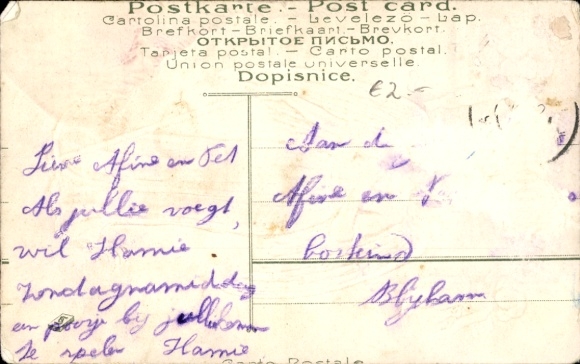 Postkarte. - Post card.
Cartolina postale. - Levelező-Lap.
Brefkort - Briefkaart - Brevkort.
ОТКРЫТОЕ ПИСЬМО.
Tarjeta postal. - Carto postal.
Union postale universelle.
Dopisnice.
€2.-
Lieve Afine en
Als jullie voegt,
wil Hannie
Zondagnamiddag
en by
te spelen Hannie
Aan d
Afine en
Carto Postale